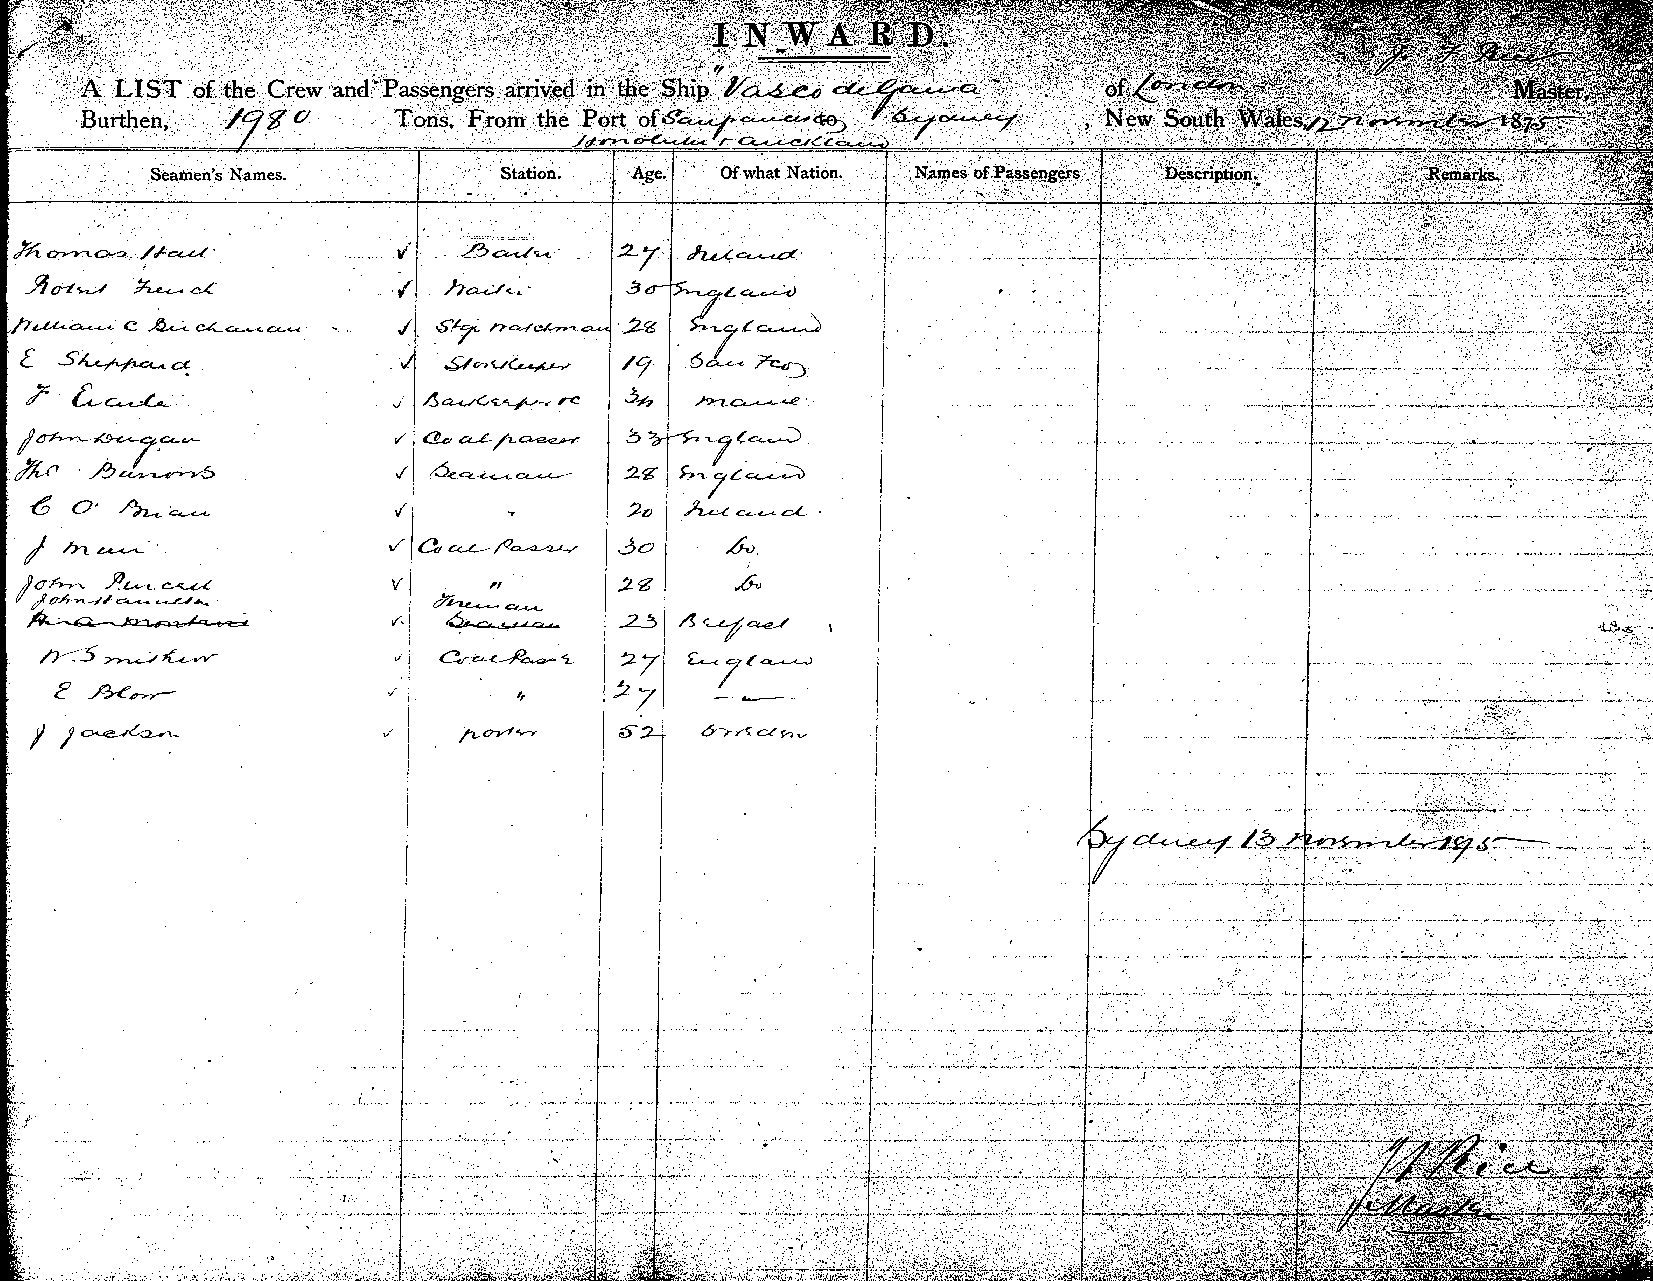 INWARD.
J F Rice
A LIST of the Crew and Passengers arrived in the Ship "Vasco de Gama of London Master,
Burthen, 1980 Tons, From the Port of San Francisco to Sydney, New South Wales, 12 November 1875
Honolulu & Auckland
Seamen's Names. Station. Age. Of what Nation. Names of Passengers Description. Remarks.
Thomas Hall ✓ 27 Ireland
Robert French ✓ Waiter 30 England
William C Buchanan ✓ Stg Watchman 28 England
E Sheppard ✓ Storekeeper 19 San Fco
F ✓ Barkeeper 34 Maine
John Dugan ✓ Coal passer 33 England
Thos Barrows ✓ Seaman 28 England
C O'Brian ✓ " 20 Ireland
J Man ✓ Coal Passer 30 Do
John Purcell ✓ " 28 Do
John Hamilton Fireman
✓ Seaman 23 Belfast
W. Smithers ✓ Coal Passr 27 England
E Blow ✓ " 27 —
J Jackson ✓ porter 52
Sydney 13 November 1875
J F Rice
Master